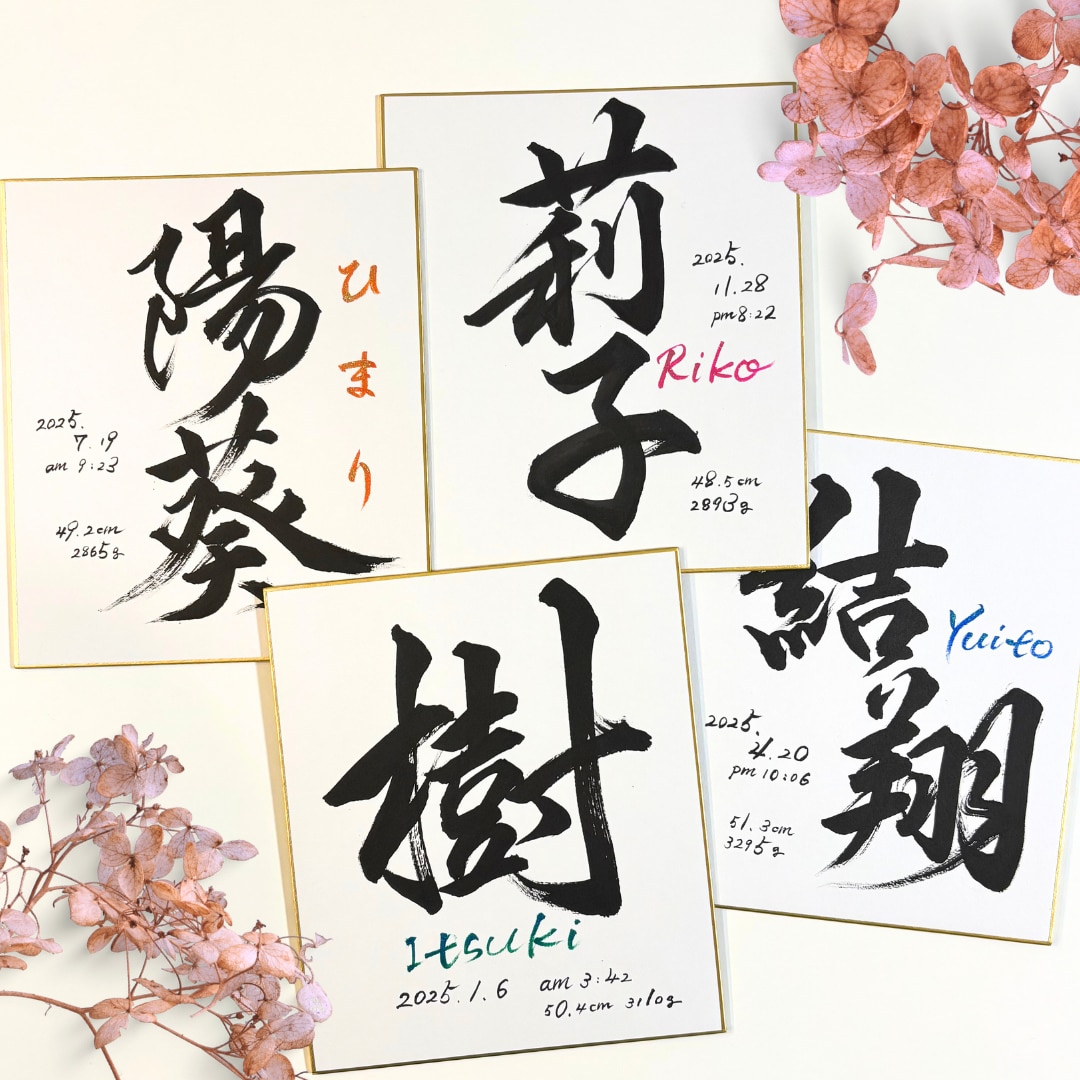 陽葵
ひまり
2025.
7.19
am 9:23
49.2cm
2865g
莉子
2025.
11.28
pm 8:22
Riko
48.5cm
2893g
樹
Itsuki
2025.1.6 am 3:42
50.4cm 3110g
結翔
Yuito
2025.
4.20
pm 10:06
51.3cm
3295g